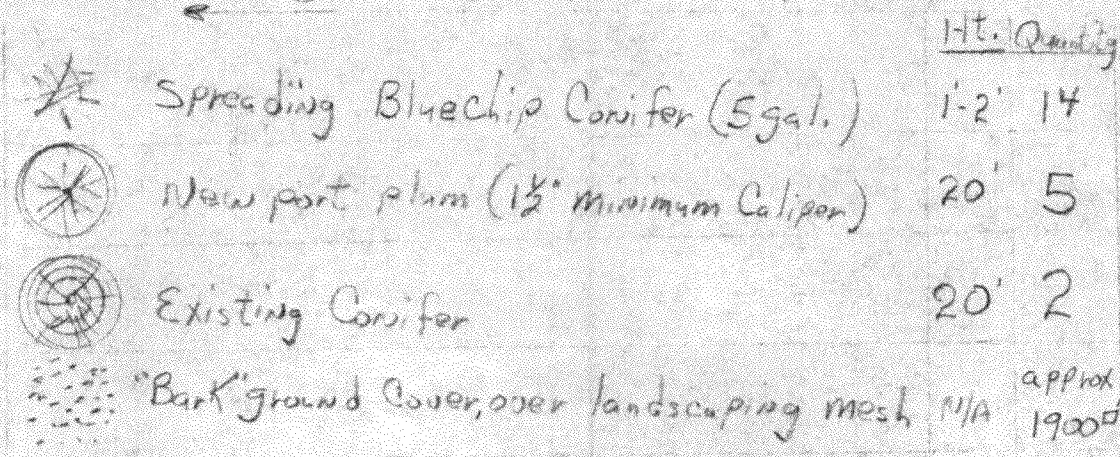 Ht. Quantity
Spreading Bluechip Conifer (5gal.) 1'-2' 14
Newport plum (1½" minimum Caliper) 20' 5
Existing Conifer 20' 2
"Bark" ground Cover, over landscaping mesh N/A approx 1900□